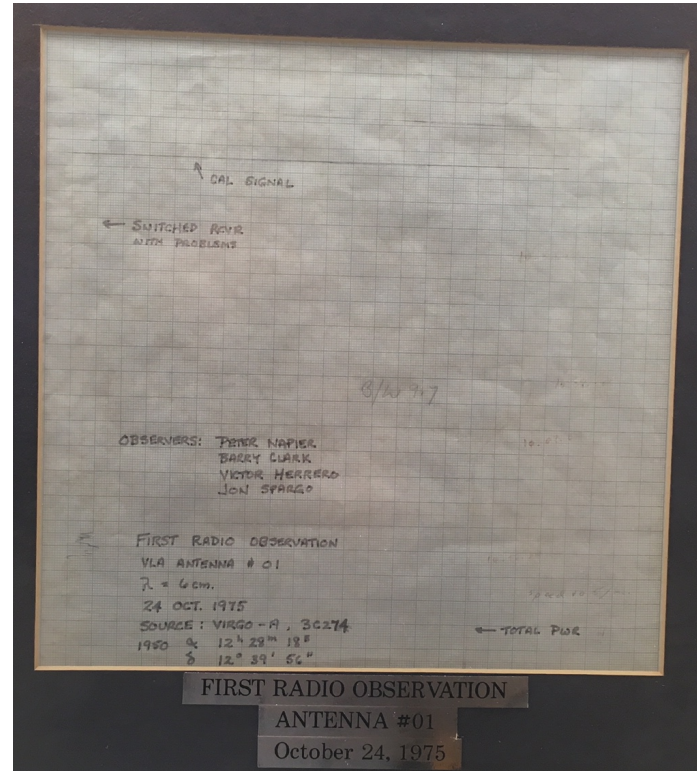 CAL SIGNAL
← SWITCHED RCVR
WITH PROBLEMS
OBSERVERS: PETER NAPIER
BARRY CLARK
VICTOR HERRERO
JON SPARGO
FIRST RADIO OBSERVATION
VLA ANTENNA # 01
λ = 6 cm.
24 OCT. 1975
SOURCE: VIRGO-A, 3C274
1950 α 12ʰ 28ᵐ 18ˢ
← TOTAL PWR
δ 12° 39' 56"
FIRST RADIO OBSERVATION
ANTENNA #01
October 24, 1975